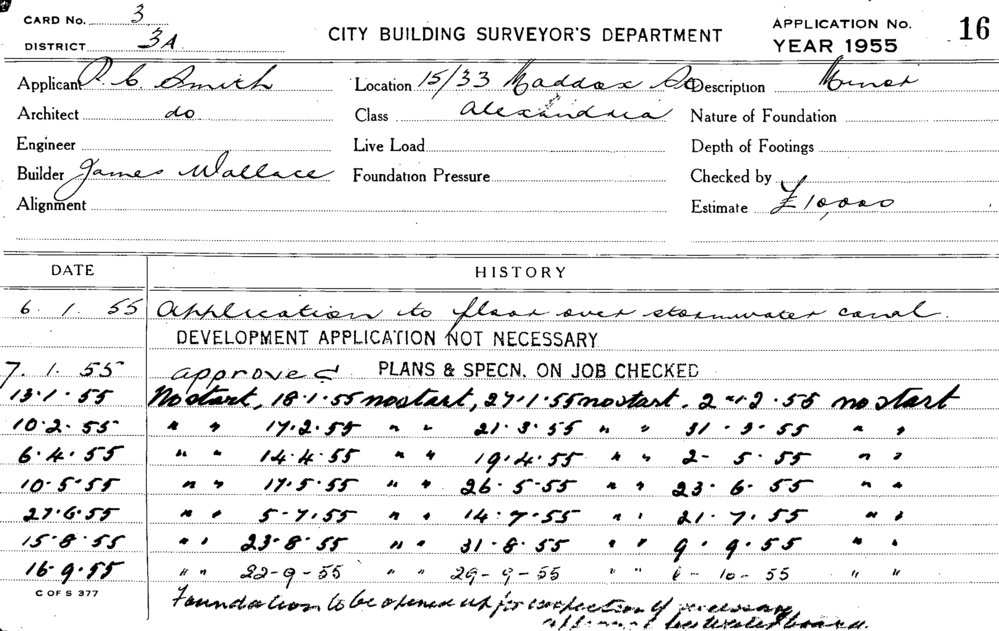 CARD No. 3
DISTRICT 3A
CITY BUILDING SURVEYOR'S DEPARTMENT
APPLICATION No. 16
YEAR 1955
Applicant P. C. Smith Location 15/33 Maddox St Description Minor
Architect do Class Alexandria Nature of Foundation
Engineer Live Load Depth of Footings
Builder James Wallace Foundation Pressure Checked by
Alignment Estimate £10,000
DATE HISTORY
6. 1. 55 Application to floor over stormwater canal.
DEVELOPMENT APPLICATION NOT NECESSARY
7. 1. 55 approved PLANS & SPECN. ON JOB CHECKED
13.1.55 No start, 18.1.55 no start, 27.1.55 no start. 2.2.55 no start
10.2.55 " " 17.2.55 " " 21.3.55 " " 31.3.55 " "
6.4.55 " " 14.4.55 " " 19.4.55 " " 2-5.55 " "
10.5.55 " " 17.5.55 " " 26.5-55 " " 23.6.55 " "
27.6.55 " " 5-7.55 " " 14.7.55 " " 21.7.55 " "
15.8.55 " " 23.8.55 " " 31.8.55 " " 9.9.55 " "
16.9.55 " " 22-9-55 " " 29-9-55 " " 6-10-55 " "
C OF S 377
Foundation to be opened up for inspection if necessary
water board.